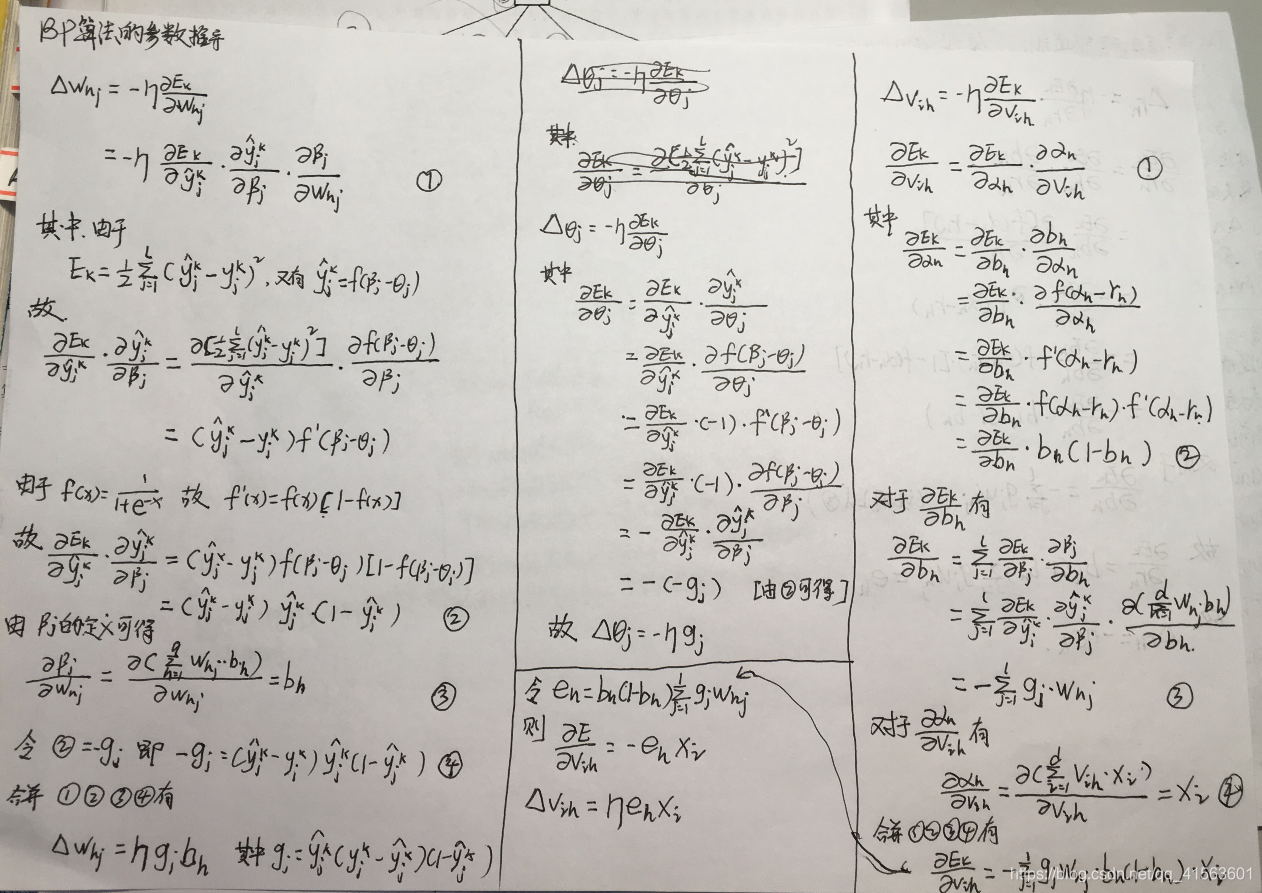 BP算法的参数推导
Δw_hj = -η ∂E_k/∂w_hj
= -η ∂E_k/∂ŷ_j^k · ∂ŷ_j^k/∂β_j · ∂β_j/∂w_hj ①
其中,由于
E_k = 1/2 Σ_{j=1}^{l} (ŷ_j^k - y_j^k)^2, 又有 ŷ_j^k = f(β_j - θ_j)
故
∂E_k/∂ŷ_j^k · ∂ŷ_j^k/∂β_j = ∂[1/2 Σ_{j=1}^{l} (ŷ_j^k - y_j^k)^2]/∂ŷ_j^k · ∂f(β_j - θ_j)/∂β_j
= (ŷ_j^k - y_j^k) f'(β_j - θ_j)
由于 f(x) = 1/(1+e^-x) 故 f'(x) = f(x)[1 - f(x)]
故 ∂E_k/∂ŷ_j^k · ∂ŷ_j^k/∂β_j = (ŷ_j^k - y_j^k) f(β_j - θ_j)[1 - f(β_j - θ_j)]
= (ŷ_j^k - y_j^k) ŷ_j^k · (1 - ŷ_j^k) ②
由β_j的定义可得
∂β_j/∂w_hj = ∂(Σ_{h=1}^{q} w_hj · b_h)/∂w_hj = b_h ③
令 ② = -g_j 即 -g_j = (ŷ_j^k - y_j^k) ŷ_j^k (1 - ŷ_j^k) ④
合并 ①②③④有
Δw_hj = η g_j b_h 其中 g_j = ŷ_j^k (y_j^k - ŷ_j^k)(1 - ŷ_j^k)
Δθ_j = -η ∂E_k/∂θ_j
其中
∂E_k/∂θ_j = ∂[1/2 Σ_{j=1}^{l} (ŷ_j^k - y_j^k)^2]/∂θ_j
Δθ_j = -η ∂E_k/∂θ_j
其中
∂E_k/∂θ_j = ∂E_k/∂ŷ_j^k · ∂ŷ_j^k/∂θ_j
= ∂E_k/∂ŷ_j^k · ∂f(β_j - θ_j)/∂θ_j
= ∂E_k/∂ŷ_j^k · (-1) · f'(β_j - θ_j)
= ∂E_k/∂ŷ_j^k · (-1) · ∂f(β_j - θ_j)/∂β_j
= - ∂E_k/∂ŷ_j^k · ∂ŷ_j^k/∂β_j
= -(-g_j) [由②可得]
故 Δθ_j = -η g_j
令 e_h = b_h(1 - b_h) Σ_{j=1}^{l} g_j w_hj
则 ∂E/∂v_ih = -e_h x_i
Δv_ih = η e_h x_i
Δv_ih = -η ∂E_k/∂v_ih
∂E_k/∂v_ih = ∂E_k/∂α_h · ∂α_h/∂v_ih ①
其中
∂E_k/∂α_h = ∂E_k/∂b_h · ∂b_h/∂α_h
= ∂E_k/∂b_h · ∂f(α_h - r_h)/∂α_h
= ∂E_k/∂b_h · f'(α_h - r_h)
= ∂E_k/∂b_h · f(α_h - r_h) · f'(α_h - r_h)
= ∂E_k/∂b_h · b_h(1 - b_h) ②
对于 ∂E_k/∂b_h 有
∂E_k/∂b_h = Σ_{j=1}^{l} ∂E_k/∂β_j · ∂β_j/∂b_h
= Σ_{j=1}^{l} ∂E_k/∂ŷ_j^k · ∂ŷ_j^k/∂β_j · ∂(Σ w_hj b_h)/∂b_h
= -Σ_{j=1}^{l} g_j · w_hj ③
对于 ∂α_h/∂v_ih 有
∂α_h/∂v_ih = ∂(Σ_{i=1}^{d} v_ih · x_i)/∂v_ih = x_i ④
合并①②③④有
∂E_k/∂v_ih = -Σ_{j=1}^{l} g_j w_hj · b_h(1 - b_h) · x_i
https://blog.csdn.net/qq_41563601